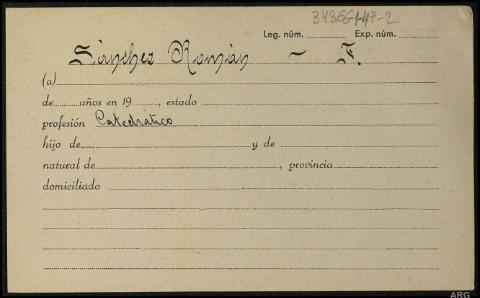 34366/47-2
Leg. núm. Exp. núm.
Sánchez Román - F.
(a)
de años en 19 , estado
profesión Catedrático
hijo de y de
natural de , provincia
domiciliado
ARG